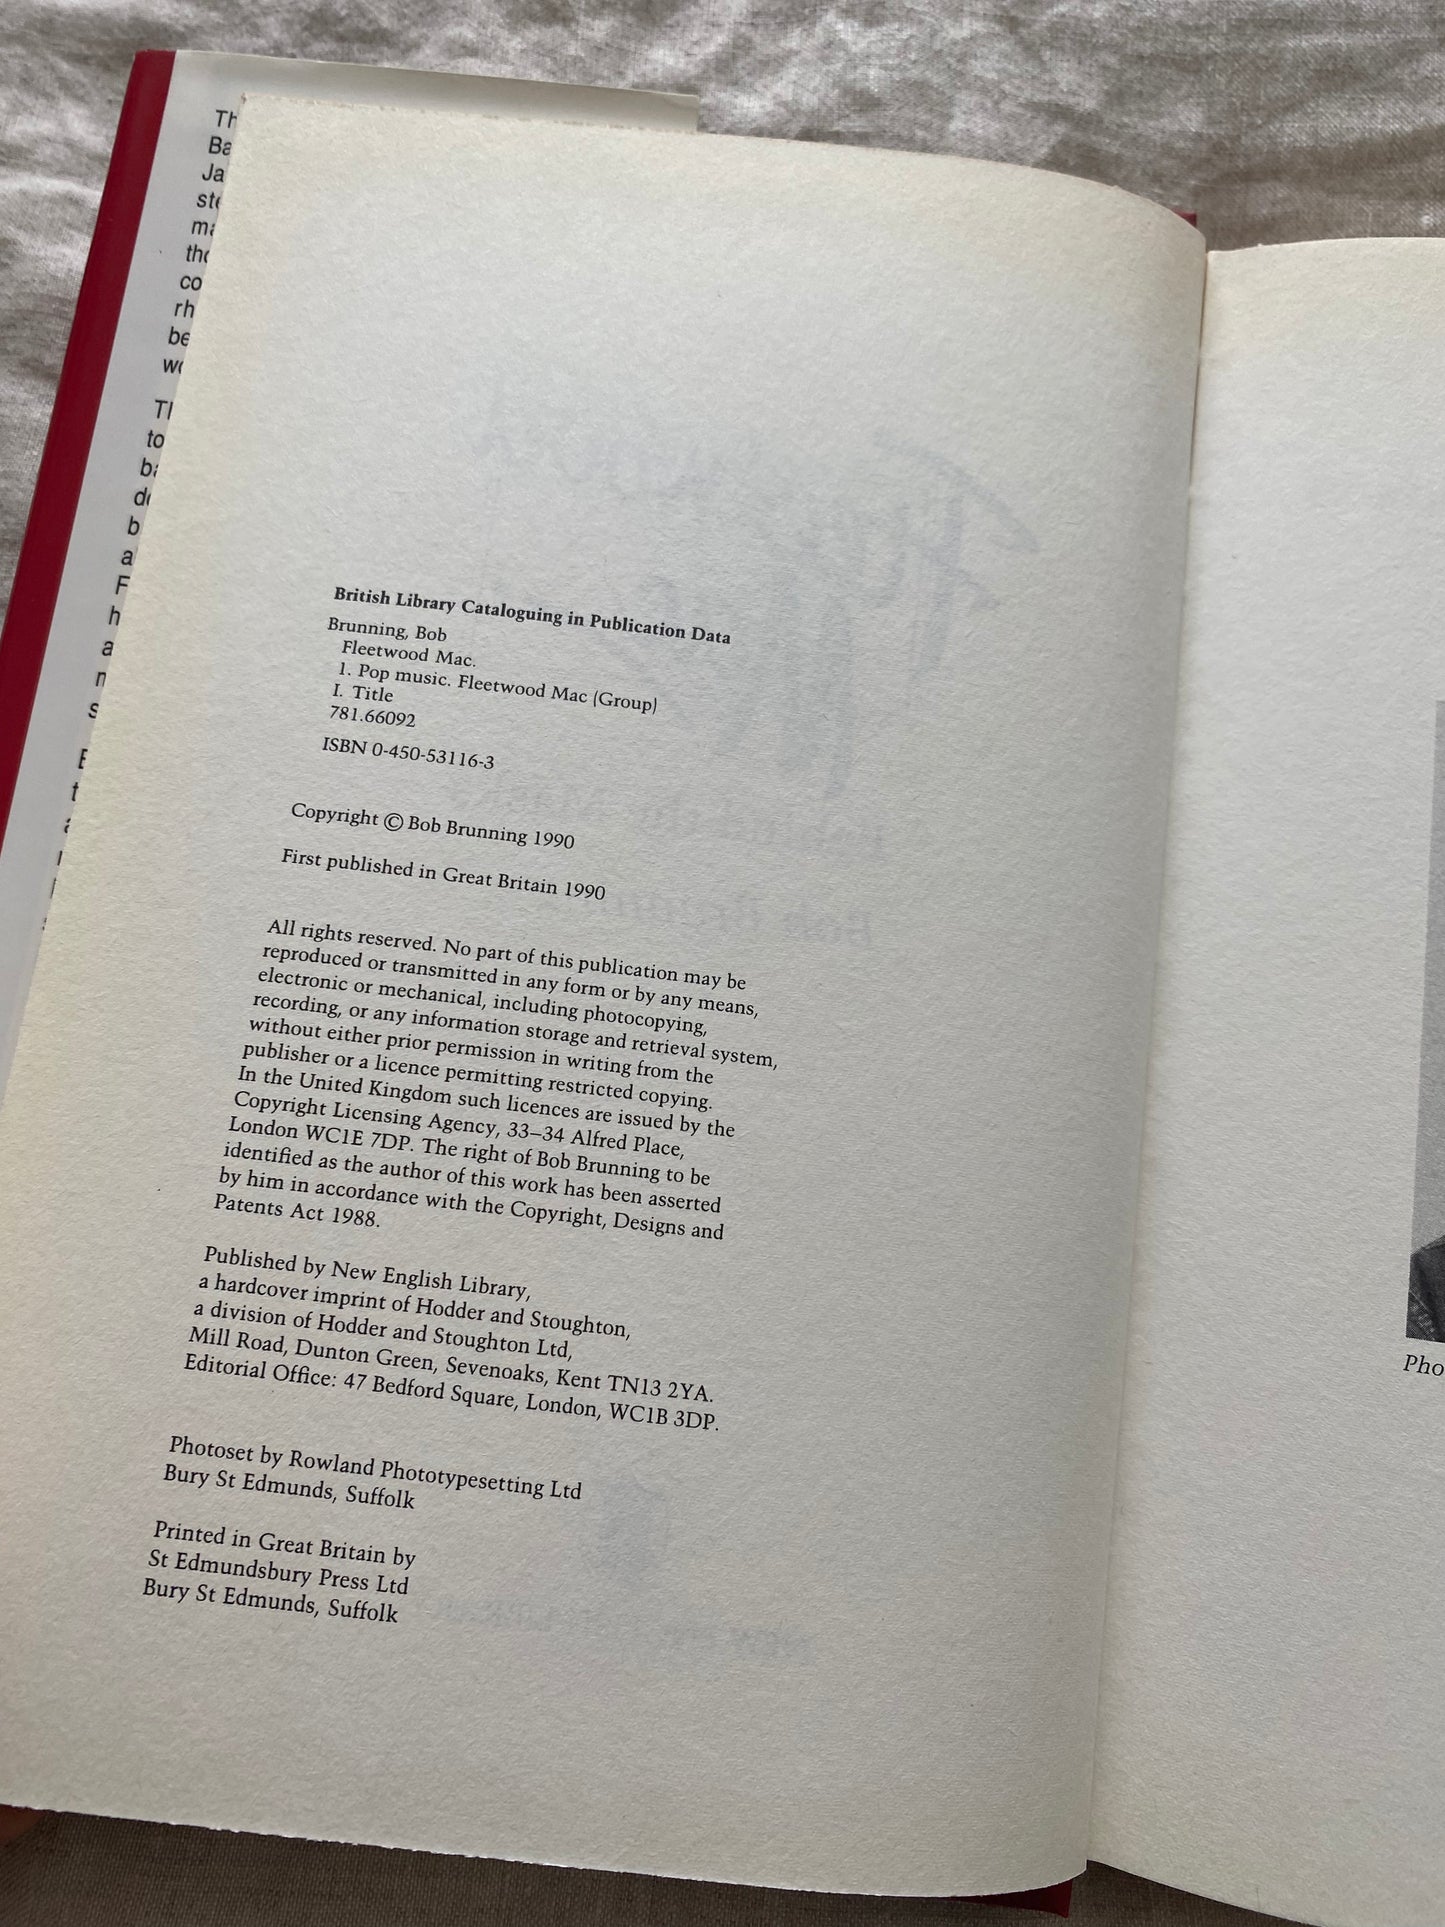 British Library Cataloguing in Publication Data
Brunning, Bob
Fleetwood Mac.
1. Pop music. Fleetwood Mac (Group)
I. Title
781.66092
ISBN 0-450-53116-3
Copyright © Bob Brunning 1990
First published in Great Britain 1990
All rights reserved. No part of this publication may be
reproduced or transmitted in any form or by any means,
electronic or mechanical, including photocopying,
recording, or any information storage and retrieval system,
without either prior permission in writing from the
publisher or a licence permitting restricted copying.
In the United Kingdom such licences are issued by the
Copyright Licensing Agency, 33–34 Alfred Place,
London WC1E 7DP. The right of Bob Brunning to be
identified as the author of this work has been asserted
by him in accordance with the Copyright, Designs and
Patents Act 1988.
Published by New English Library,
a hardcover imprint of Hodder and Stoughton,
a division of Hodder and Stoughton Ltd,
Mill Road, Dunton Green, Sevenoaks, Kent TN13 2YA.
Editorial Office: 47 Bedford Square, London, WC1B 3DP.
Photoset by Rowland Phototypesetting Ltd
Bury St Edmunds, Suffolk
Printed in Great Britain by
St Edmundsbury Press Ltd
Bury St Edmunds, Suffolk
Pho